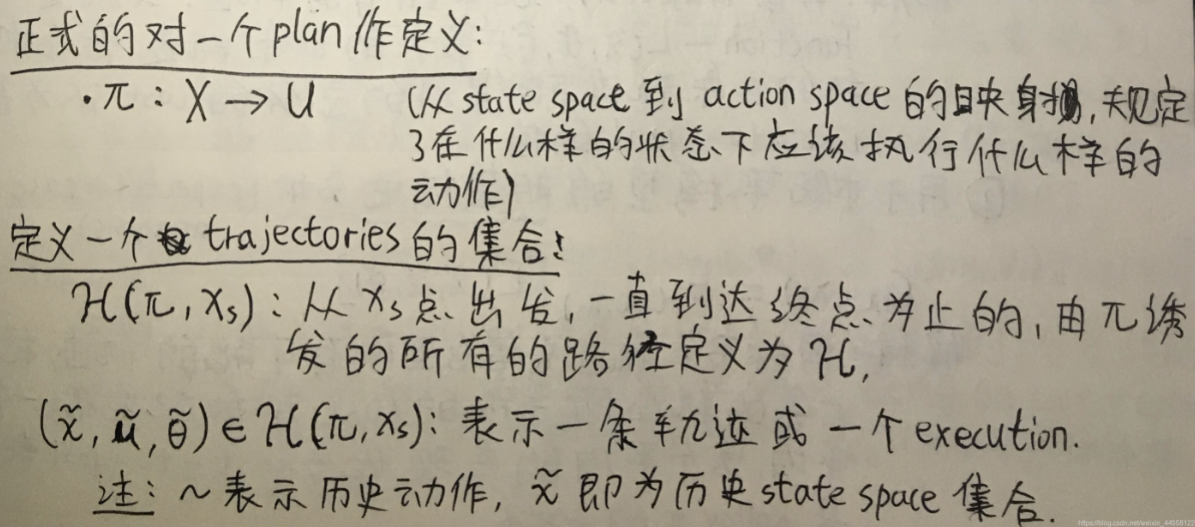 正式的对一个plan作定义:
·π: X → U (从state space到 action space的映射, 规定
了在什么样的状态下应该执行什么样的
动作)
定义一个trajectories的集合:
H(π, xs): 从xs点出发,一直到达终点为止的,由π诱
发的所有的路径定义为H,
(x̃, ũ, θ̃) ∈ H(π, xs): 表示一条轨迹或一个execution.
注: ~表示历史动作, x̃ 即为历史state space集合.
https://blog.csdn.net/weixin_44558122